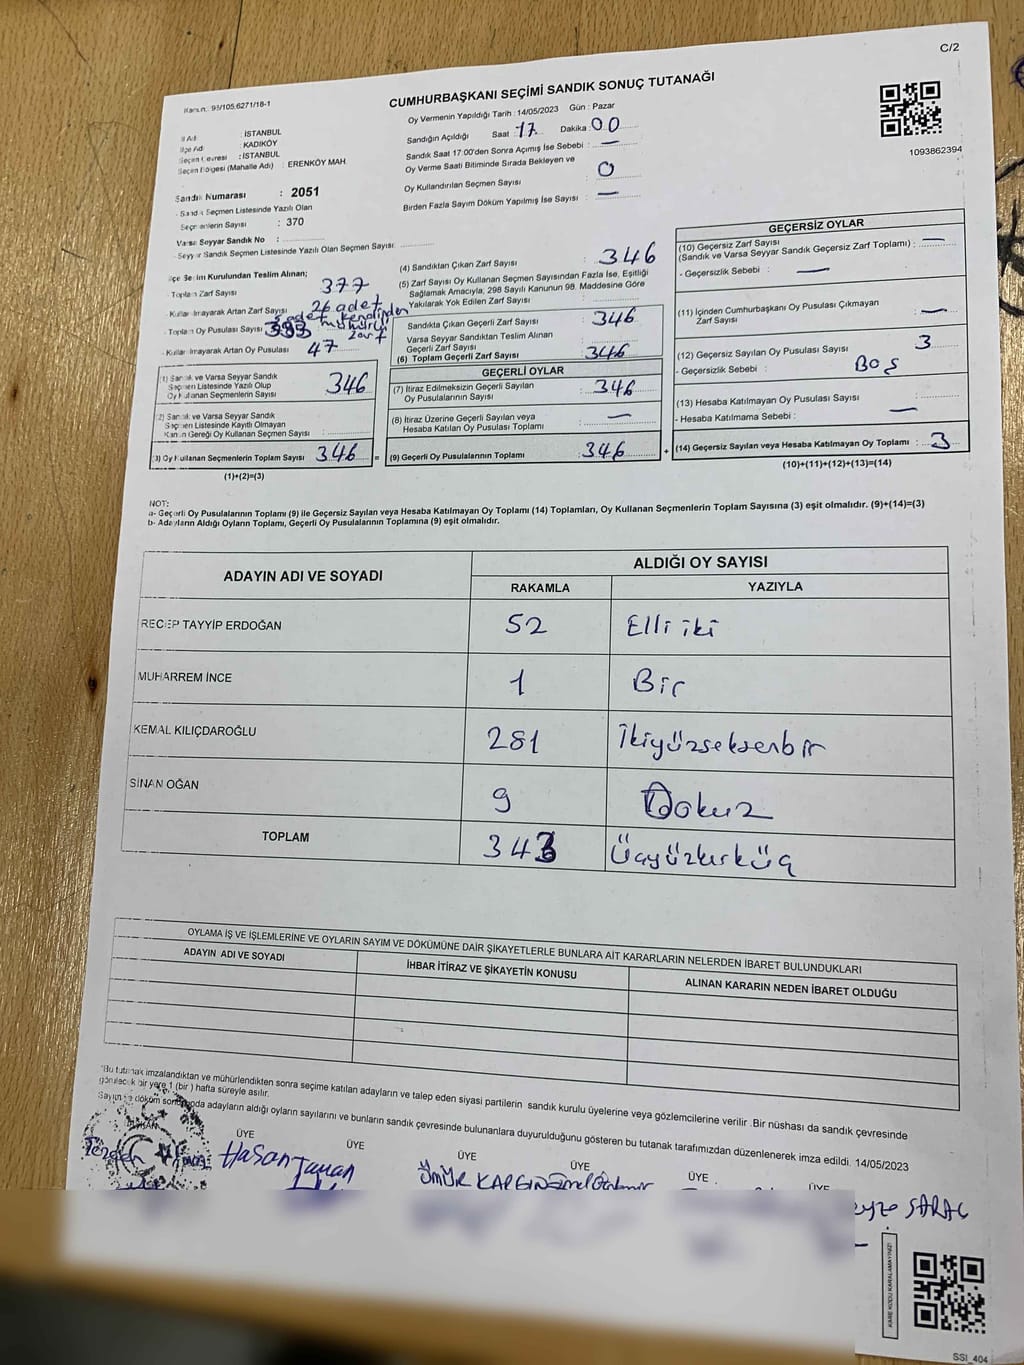 C/2
Kanun : 98/105.6271/18-1
CUMHURBAŞKANI SEÇİMİ SANDIK SONUÇ TUTANAĞI
Oy Vermenin Yapıldığı Tarih : 14/05/2023 Gün : Pazar
İl Adı : İSTANBUL
İlçe Adı : KADIKÖY
Seçim Çevresi : İSTANBUL
Seçim Bölgesi (Mahalle Adı) : ERENKÖY MAH.
Sandık Numarası : 2051
- Sandık Seçmen Listesinde Yazılı Olan
Seçmenlerin Sayısı : 370
Varsa Seyyar Sandık No :
- Seyyar Sandık Seçmen Listesinde Yazılı Olan Seçmen Sayısı:
Sandığın Açıldığı Saat : 17 Dakika : 00
Sandık Saat 17:00'den Sonra Açımış İse Sebebi : —
Oy Verme Saati Bitiminde Sırada Bekleyen ve
Oy Kullandırılan Seçmen Sayısı : 0
Birden Fazla Sayım Döküm Yapılmış İse Sayısı : —
1093862394
İlçe Seçim Kurulundan Teslim Alınan;
- Toplam Zarf Sayısı 377
- Kullanılmayarak Artan Zarf Sayısı 26 adet
5 adet kendinden
mühürlü
zarf
- Toplam Oy Pusulası Sayısı 393
- Kullanılmayarak Artan Oy Pusulası 47
(1) Sandık ve Varsa Seyyar Sandık
Seçmen Listesinde Yazılı Olup
Oy Kullanan Seçmenlerin Sayısı 346
(2) Sandık ve Varsa Seyyar Sandık
Seçmen Listesinde Kayıtlı Olmayan
Kanun Gereği Oy Kullanan Seçmen Sayısı :
(3) Oy Kullanan Seçmenlerin Toplam Sayısı 346 =
(1)+(2)=(3)
(4) Sandıktan Çıkan Zarf Sayısı : 346
(5) Zarf Sayısı Oy Kullanan Seçmen Sayısından Fazla İse, Eşitliği
Sağlamak Amacıyla, 298 Sayılı Kanunun 98. Maddesine Göre
Yakılarak Yok Edilen Zarf Sayısı :
Sandıkta Çıkan Geçerli Zarf Sayısı : 346
Varsa Seyyar Sandıktan Teslim Alınan
Geçerli Zarf Sayısı :
(6) Toplam Geçerli Zarf Sayısı : 346
GEÇERLİ OYLAR
(7) İtiraz Edilmeksizin Geçerli Sayılan
Oy Pusulalarının Sayısı : 346
(8) İtiraz Üzerine Geçerli Sayılan veya
Hesaba Katılan Oy Pusulası Toplamı : —
(9) Geçerli Oy Pusulalarının Toplamı : 346 +
GEÇERSİZ OYLAR
(10) Geçersiz Zarf Sayısı
(Sandık ve Varsa Seyyar Sandık Geçersiz Zarf Toplamı) : —
- Geçersizlik Sebebi : —
(11) İçinden Cumhurbaşkanı Oy Pusulası Çıkmayan
Zarf Sayısı : —
(12) Geçersiz Sayılan Oy Pusulası Sayısı : 3
- Geçersizlik Sebebi : BOŞ
(13) Hesaba Katılmayan Oy Pusulası Sayısı :
- Hesaba Katılmama Sebebi : —
(14) Geçersiz Sayılan veya Hesaba Katılmayan Oy Toplamı : 3
(10)+(11)+(12)+(13)=(14)
NOT:
a- Geçerli Oy Pusulalarının Toplamı (9) ile Geçersiz Sayılan veya Hesaba Katılmayan Oy Toplamı (14) Toplamları, Oy Kullanan Seçmenlerin Toplam Sayısına (3) eşit olmalıdır. (9)+(14)=(3)
b- Adayların Aldığı Oyların Toplamı, Geçerli Oy Pusulalarının Toplamına (9) eşit olmalıdır.
ADAYIN ADI VE SOYADI
ALDIĞI OY SAYISI
RAKAMLA YAZIYLA
RECEP TAYYİP ERDOĞAN 52 Elli iki
MUHARREM İNCE 1 Bir
KEMAL KILIÇDAROĞLU 281 İkiyüzseksenbir
SİNAN OĞAN 9 Dokuz
TOPLAM 343 Üçyüzkırküç
OYLAMA İŞ VE İŞLEMLERİNE VE OYLARIN SAYIM VE DÖKÜMÜNE DAİR ŞİKAYETLERLE BUNLARA AİT KARARLARIN NELERDEN İBARET BULUNDUKLARI
ADAYIN ADI VE SOYADI İHBAR İTİRAZ VE ŞİKAYETİN KONUSU ALINAN KARARIN NEDEN İBARET OLDUĞU
"Bu tutanak imzalandıktan ve mühürlendikten sonra seçime katılan adayların ve talep eden siyasi partilerin sandık kurulu üyelerine veya gözlemcilerine verilir .Bir nüshası da sandık çevresinde
görülecek bir yere 1 (bir ) hafta süreyle asılır.
Sayım ve döküm sonucunda adayların aldığı oyların sayılarını ve bunların sandık çevresinde bulunanlara duyurulduğunu gösteren bu tutanak tarafımızdan düzenlenerek imza edildi. 14/05/2023
ÜYE ÜYE ÜYE ÜYE ÜYE ÜYE
Hasan
ÖMÜR
SARAÇ
KARE KODU KARALAMAYINIZ!
SSI_404